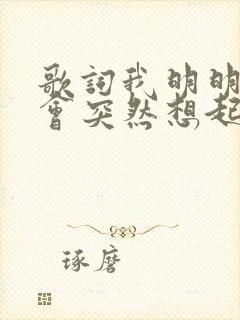 歌詞我明明
會突然想起
琢磨